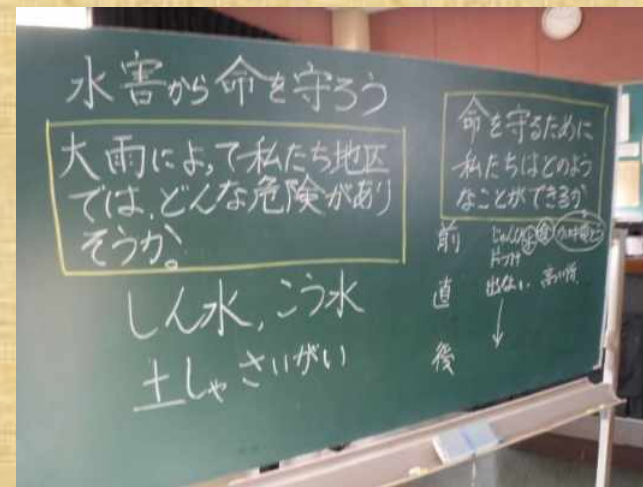 水害から命を守ろう
大雨によって私たち地区
では、どんな危険があり
そうか。
しん水，こう水
土しゃさいがい
命を守るために
私たちはどのよう
なことができるか
前 じゅんび
直 出ない 高い所
後